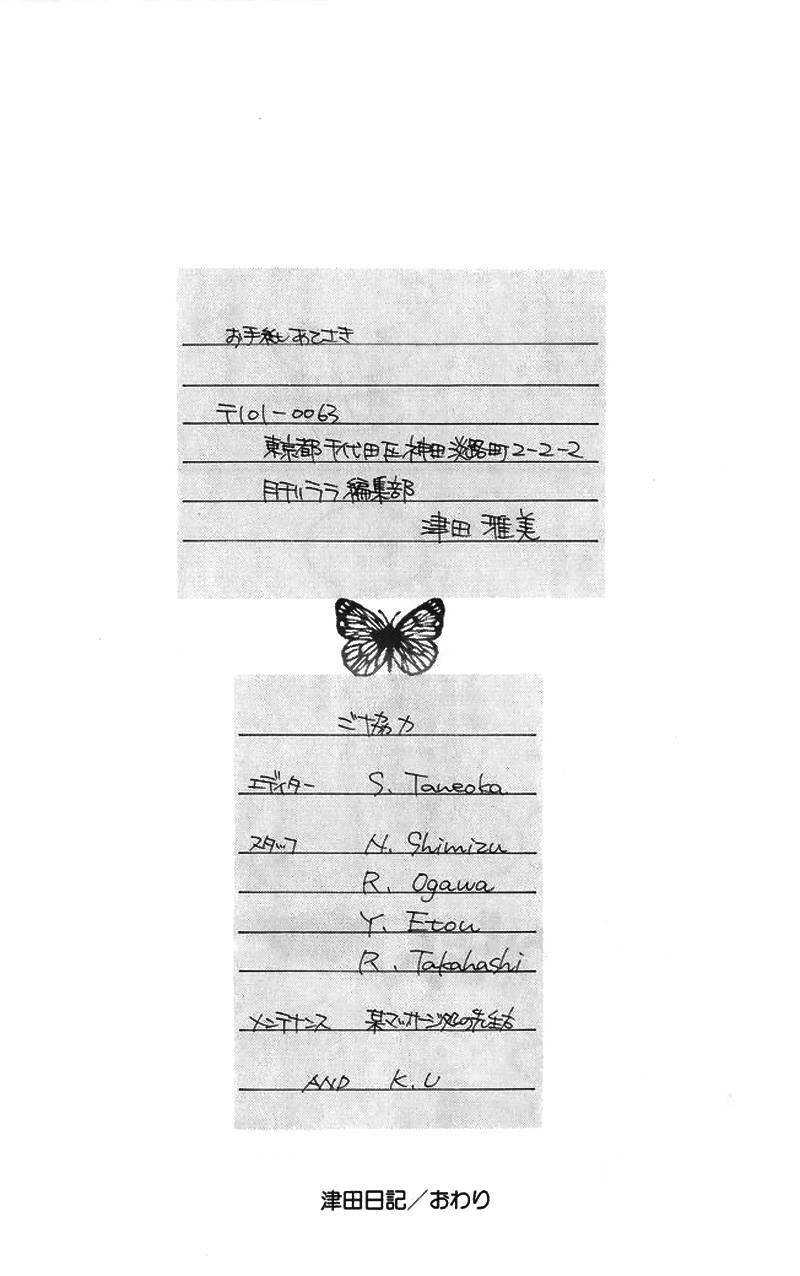 お手紙あてさき
〒101-0063
東京都千代田区神田淡路町2-2-2
月刊ララ編集部
津田 雅美
ご協力
エディター S. Taneoka
スタッフ N. Shimizu
R. Ogawa
Y. Etou
R. Takahashi
メンテナンス 某マッサージ処の先生方
AND K.U
津田日記／おわり